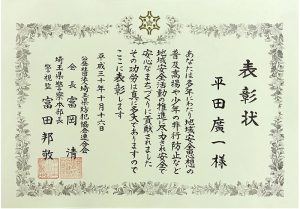 表彰状
平田廣一様
あなたは多年にわたり地域安全思想の
普及高揚や少年の非行防止など
地域安全活動の推進に尽力され安全で
安心なまちづくりに貢献されました
その功労は真に多大でありますので
ここに表彰します
平成三十年十月十六日
公益社団法人埼玉県防犯協会連合会
会長 富岡 清
埼玉県警察本部長
警視監 富田邦敬